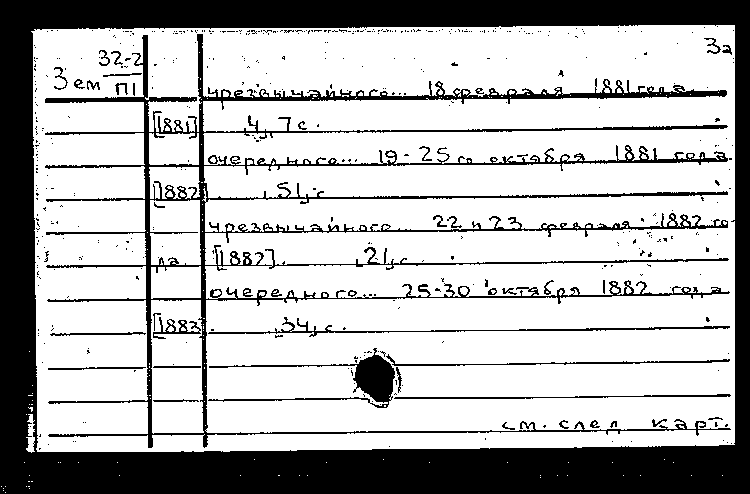 3а
Зем 32-2
П1
чрезвычайного... 18 февраля 1881 года.
[1881] ,4, 7 с.
очередного... 19-25го октября 1881 года
[1882] ,51, с
чрезвычайного... 22 и 23 февраля 1882 го-
да. [1882]. ,21, с.
очередного... 25-30 октября 1882 года
[1883]. ,34, с.
см. след карт.